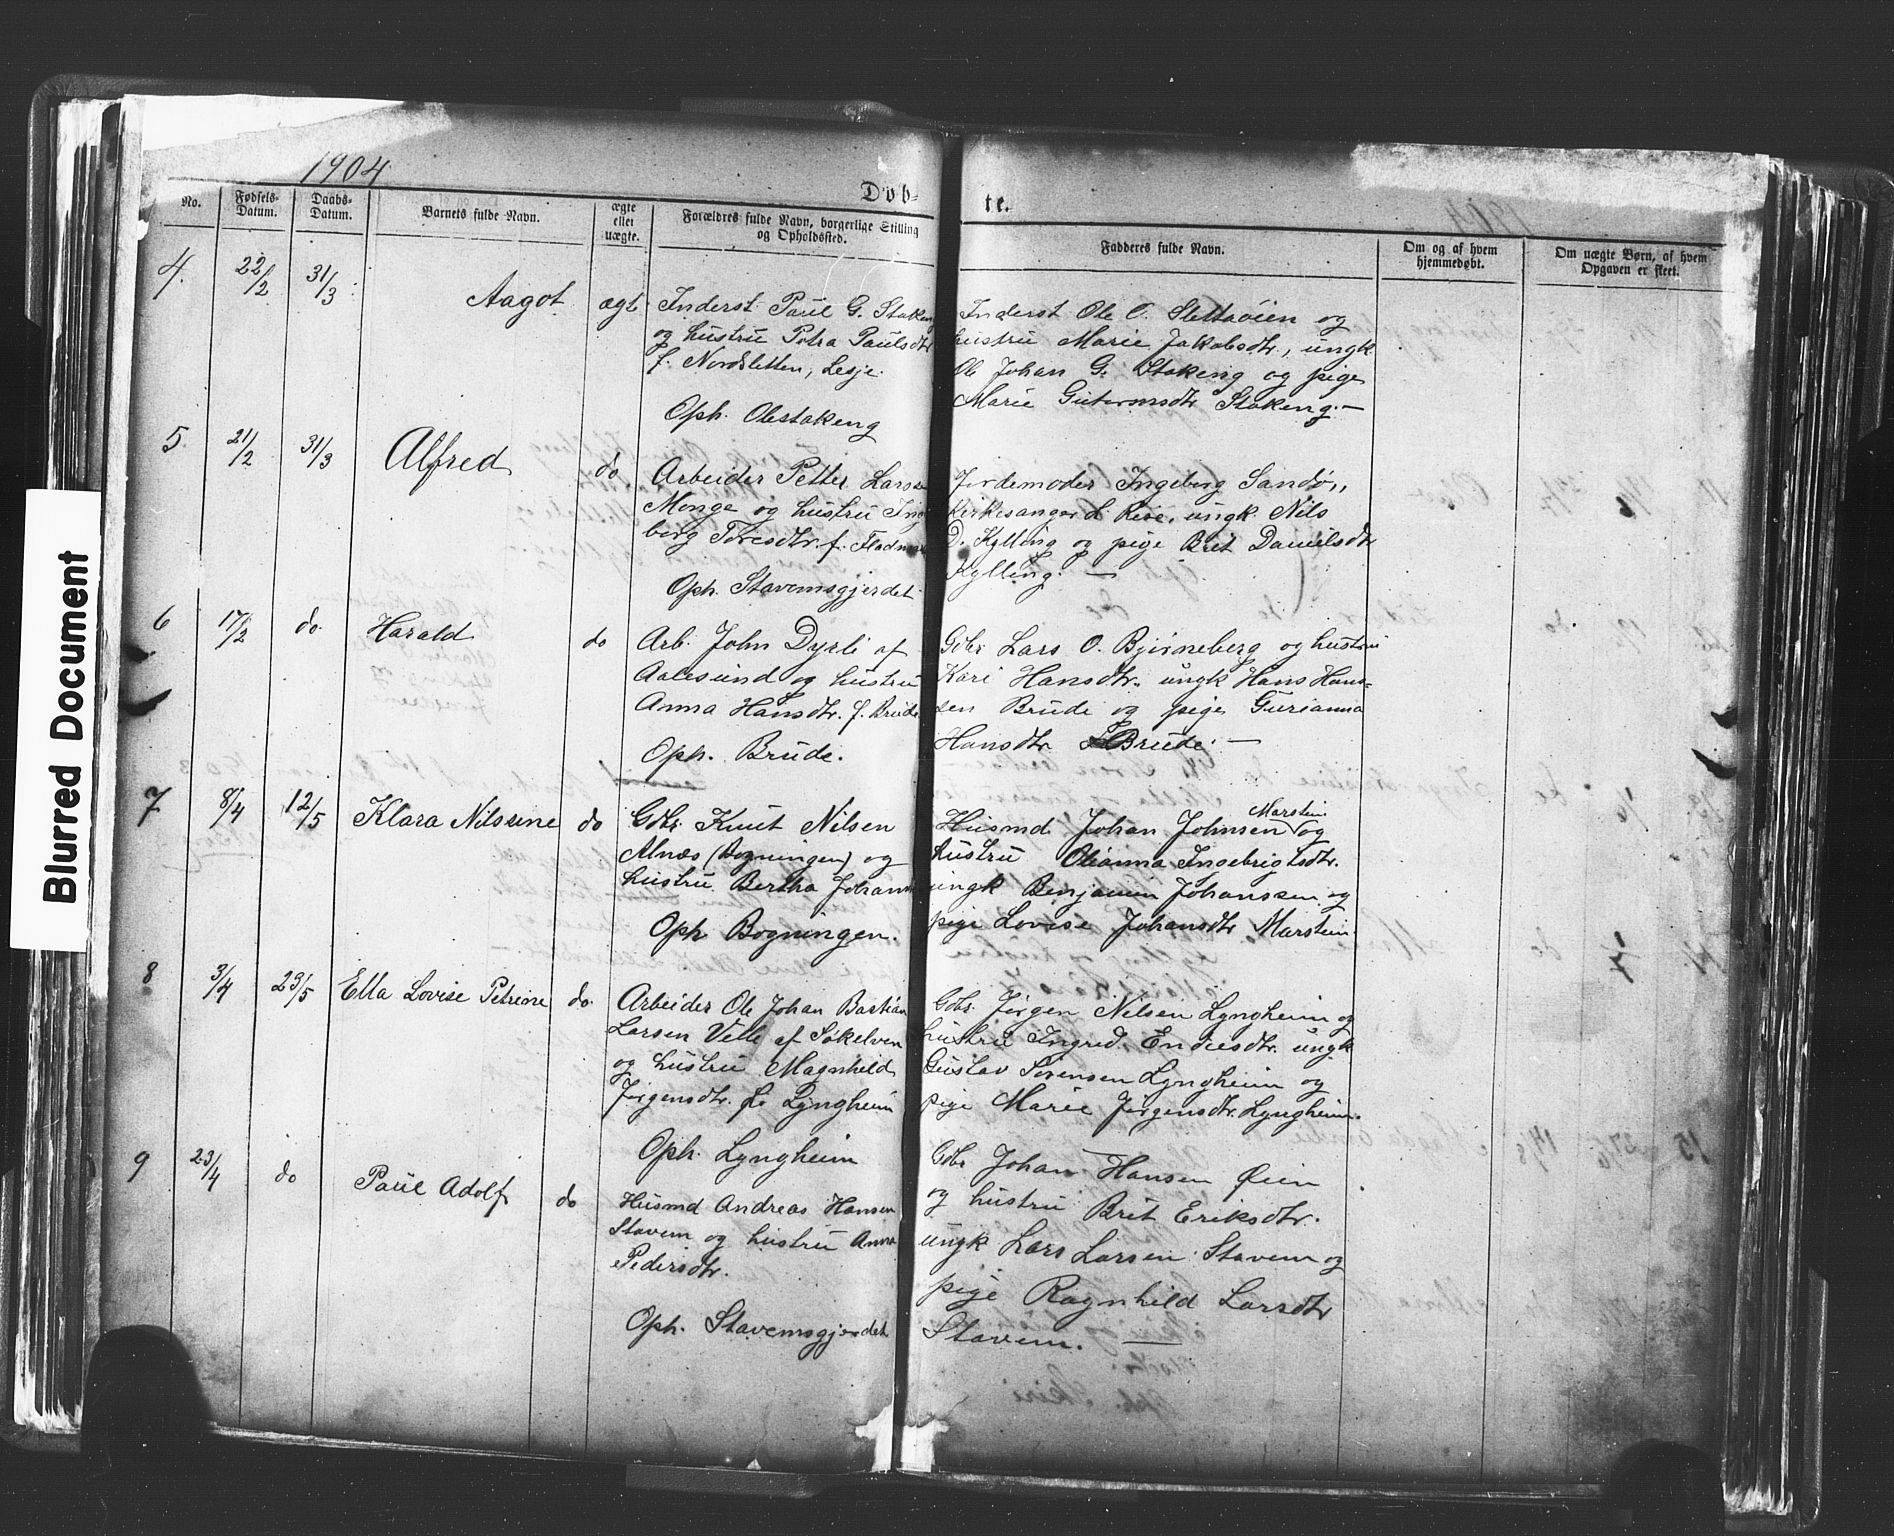 Blurred Document
1904
Døb-
te.
No.
Fødsels-Datum.
Daabs-Datum.
Barnets fulde Navn.
ægte eller uægte.
Forældres fulde Navn, borgerlige Stilling og Opholdssted.
Fadderes fulde Navn.
Om og af hvem hjemmedøbt.
Om uægte Børn, af hvem Opgaven er skeet.
4. 22/2 31/3 Aagot ægt.
Inderst Paul G. Stakeng
og hustru Petra Paulsdtr
f. Nordsletten, Lesje.
Oph. Olestakeng
Inderst Ole O. Slettaøien og
hustru Marie Jakobsdtr., ungk
Ole Johan G. Stakeng og pige
Marie Guttormsdtr Stakeng. —
5 21/2 31/3 Alfred do
Arbeider Petter Larsen
Monge og hustru Inge
berg Toresdtr f. Fladmark
Oph. Stavemsgjerdet.
Jordemoder Ingeborg Sandø,
Kirkesanger L. Rise, ungk. Nils
D. Kylling og pige Brit Danielsdtr
Kylling. —
6 17/2 do. Harald do
Arb. John Dyrli af
Aalesund og hustru
Anna Hansdtr. f. Brude
Oph. Brude.
Gbr Lars O. Bjørneberg og hustru
Kari Hansdtr., ungk Hans Hans-
sen Brude og pige Gurianna
Hansdtr Brude. —
7 8/4 12/5 Klara Nilsine do
Gbr. Knut Nilsen
Alnæs (Bogningen) og
hustru Bertha Johansd
Oph Bogningen.
Husmd Johan Johnsen Marstein og
hustru Olianna Ingebrigtsdtr.
ungk Benjamin Johanssen og
pige Lovise Johansdtr Marstein.
8 3/4 23/5 Ella Lovise Petrine do.
Arbeider Ole Johan Bastian
Larsen Velle af Søkelven
og hustru Magnhild
Jørgensdtr. f. Lyngheim
Oph. Lyngheim
Gbr. Jørgen Nilsen Lyngheim og
hustru Ingrid Endresdtr. ungk
Gustav Sørensen Lyngheim og
pige Marie Jørgensdtr. Lyngheim.
9 23/4 do Paul Adolf do
Husmd Andreas Hansen
Stavem og hustru Anne
Pedersdtr.
Oph. Stavemsgjerdet
Gbr Johan Hansen Øien
og hustru Brit Eriksdtr.
ungk Lars Larsen Stavem og
pige Ragnhild Larsdtr
Stavem. —